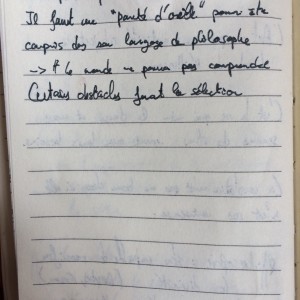 Il faut une "pureté d'oreille" pour être
compris ds son langage de philosophe
--> tt le monde ne pourra pas comprendre
Certains obstacles feront la sélection